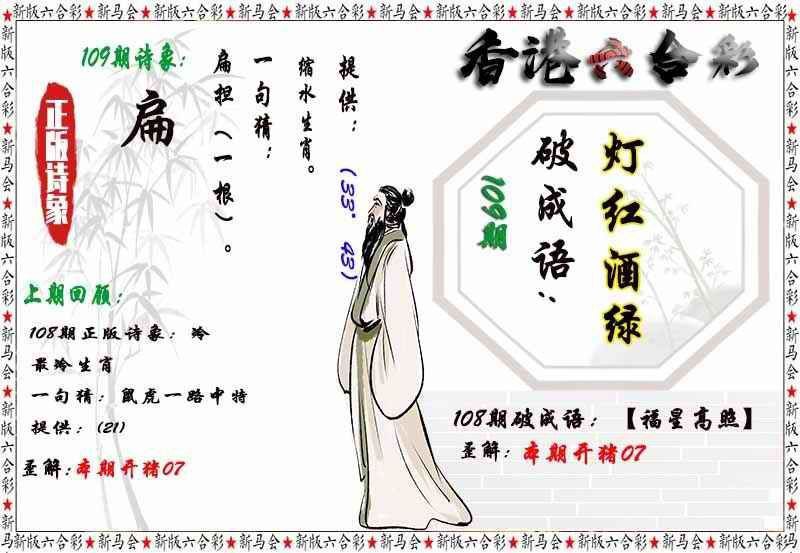 新版六合彩★新马会★新版六合彩★新马会★新版六合彩★新马会★新版六合彩★新马会★新版六合彩★新马会★新版六合彩
新版六合彩★新马会★新版六合彩★新马会★新版六合彩★新马
香港六合彩
109期诗象：
正版诗象
扁
缩水生肖。
一句猜：
扁担（一根）。
提供：(33°43)
上期回顾：
108期正版诗象：冷
最冷生肖
一句猜：鼠虎一路中特
提供：(21)
歪解：本期开猪07
109期
破成语：
灯红酒绿
108期破成语：【福星高照】
歪解：本期开猪07
新版六合彩★新马会★新版六合彩★新马会★新版六合彩★新马
新版六合彩★新马会★新版六合彩★新马会★新版六合彩★新马会★新版六合彩★新马会★新版六合彩★新马会★新版六合彩